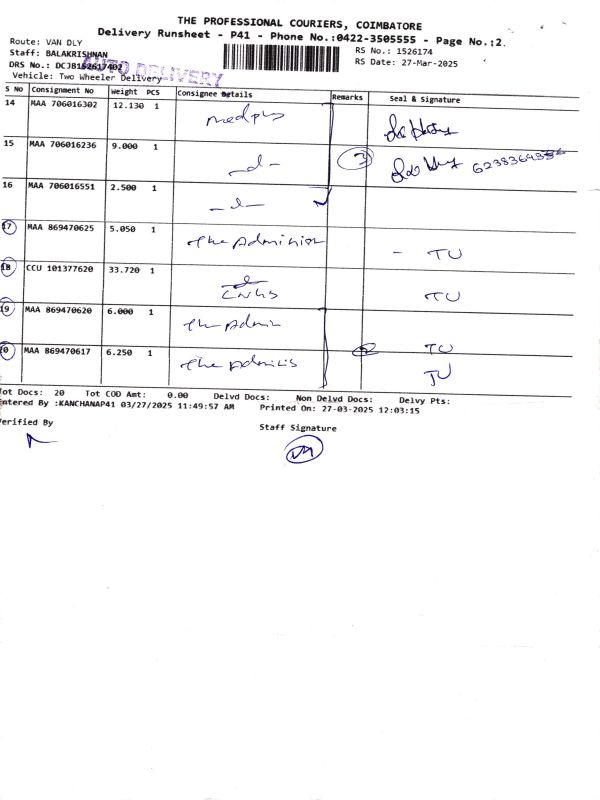 THE PROFESSIONAL COURIERS, COIMBATORE
Delivery Runsheet - P41 - Phone No.:0422-3505555 - Page No.:2.
Route: VAN DLY
RS No.: 1526174
Staff: BALAKRISHNAN
RS Date: 27-Mar-2025
AUTO DELIVERY
DRS No.: DCJB162617402
Vehicle: Two Wheeler Delivery
S No Consignment No Weight PCS Consignee Details Remarks Seal & Signature
14 MAA 706016302 12.130 1 medplus
15 MAA 706016236 9.000 1 -d- 3
16 MAA 706016551 2.500 1 -d-
17 MAA 869470625 5.050 1 The Adminion - TU
18 CCU 101377620 33.720 1 TU
19 MAA 869470620 6.000 1 The Admin TU
0 MAA 869470617 6.250 1 The TU
ot Docs: 20 Tot COD Amt: 0.00 Delvd Docs: Non Delvd Docs: Delvy Pts:
ntered By :KANCHANAP41 03/27/2025 11:49:57 AM Printed On: 27-03-2025 12:03:15
erified By
Staff Signature